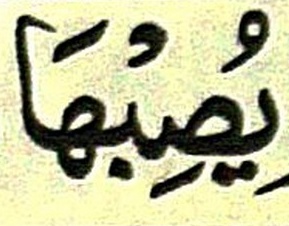 يُصِبْهَا